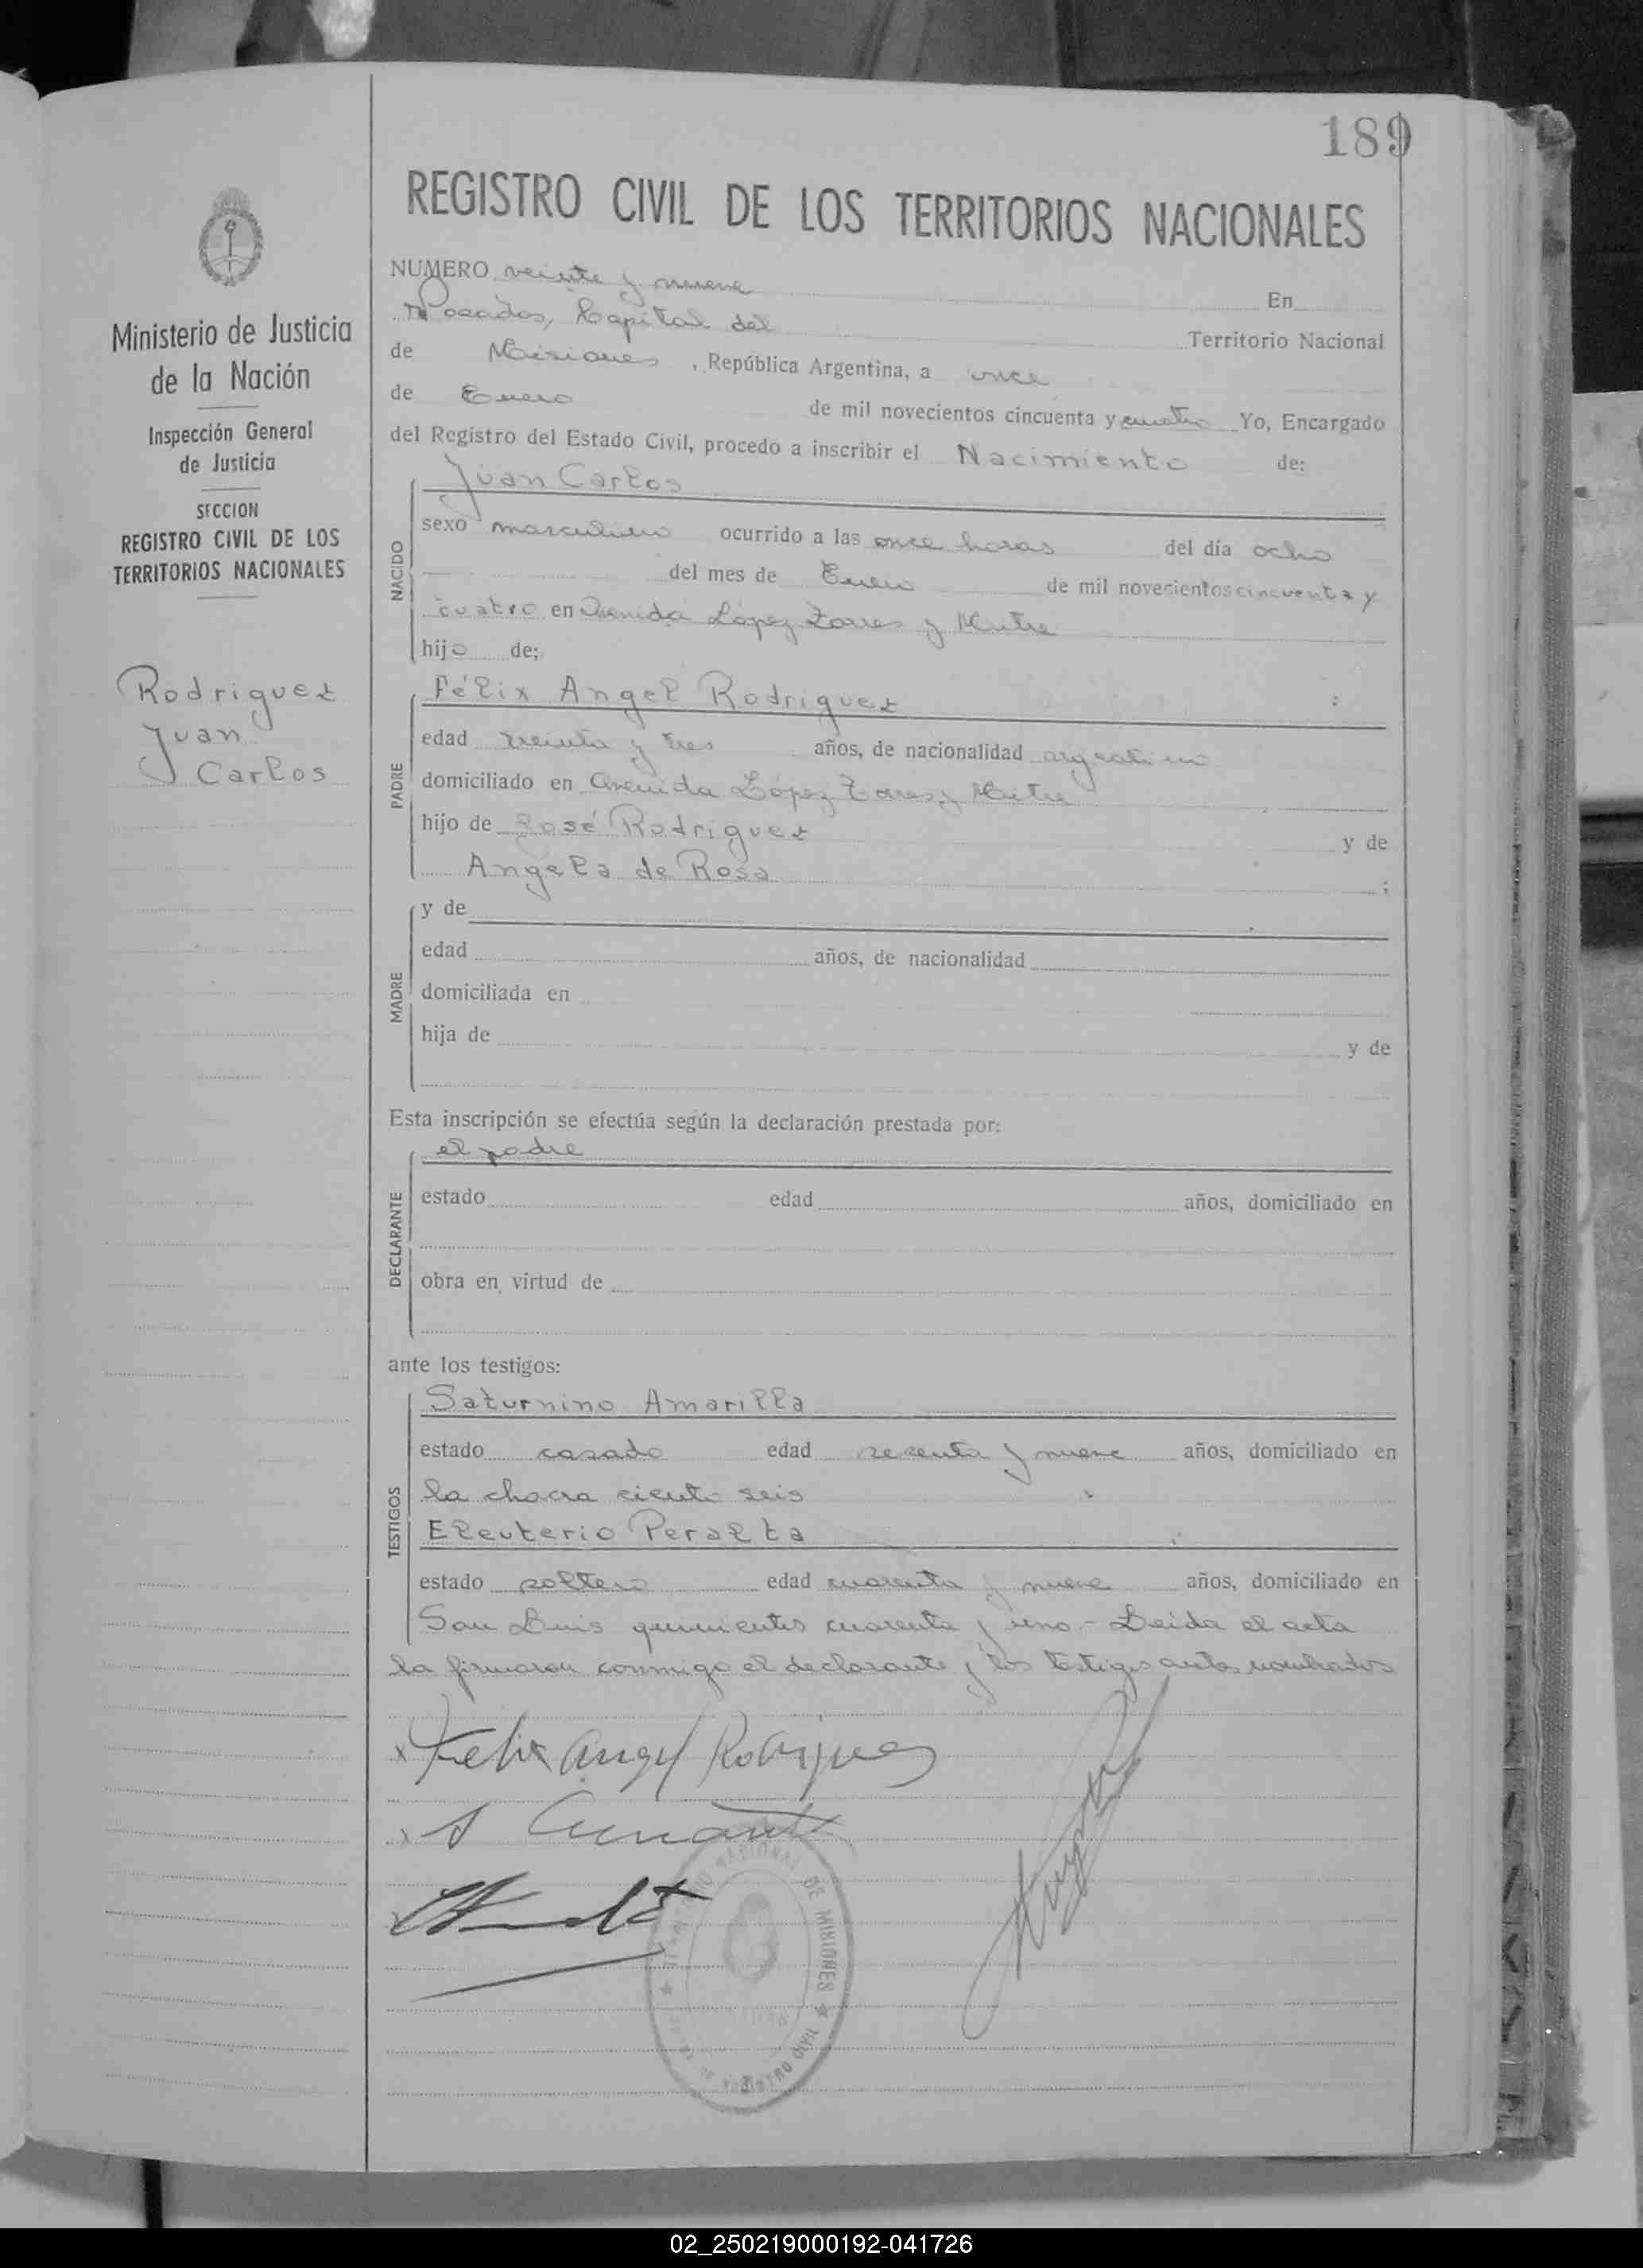 189
REGISTRO CIVIL DE LOS TERRITORIOS NACIONALES
Ministerio de Justicia
de la Nación
Inspección General
de Justicia
SECCION
REGISTRO CIVIL DE LOS
TERRITORIOS NACIONALES
Rodriguez
Juan
Carlos
NUMERO veinte y nueve En
Posadas, Capital del Territorio Nacional
de Misiones, República Argentina, a once
de Enero de mil novecientos cincuenta y cuatro Yo, Encargado
del Registro del Estado Civil, procedo a inscribir el Nacimiento de:
Juan Carlos
NACIDO
sexo masculino ocurrido a las once horas del día ocho
del mes de Enero de mil novecientos cincuenta y
cuatro en Avenida López Torres y Mitre
hijo de;
PADRE
Félix Angel Rodriguez :
edad treinta y tres años, de nacionalidad argentino
domiciliado en Avenida López Torres y Mitre
hijo de José Rodriguez y de
Angela de Rosa ;
MADRE
y de
edad años, de nacionalidad
domiciliada en
hija de y de
Esta inscripción se efectúa según la declaración prestada por:
el padre
DECLARANTE
estado edad años, domiciliado en
obra en virtud de
ante los testigos:
TESTIGOS
Saturnino Amarilla
estado casado edad sesenta y nueve años, domiciliado en
la chacra ciento seis
Eleuterio Peralta
estado soltero edad cuarenta y nueve años, domiciliado en
San Luis quinientos cuarenta y uno.- Leída el acta
la firmaron conmigo el declarante y los testigos antes nombrados
x Felix Angel Rodriguez
x S
NACIONAL DE MISIONES
REGISTRO CIVIL
02_250219000192-041726